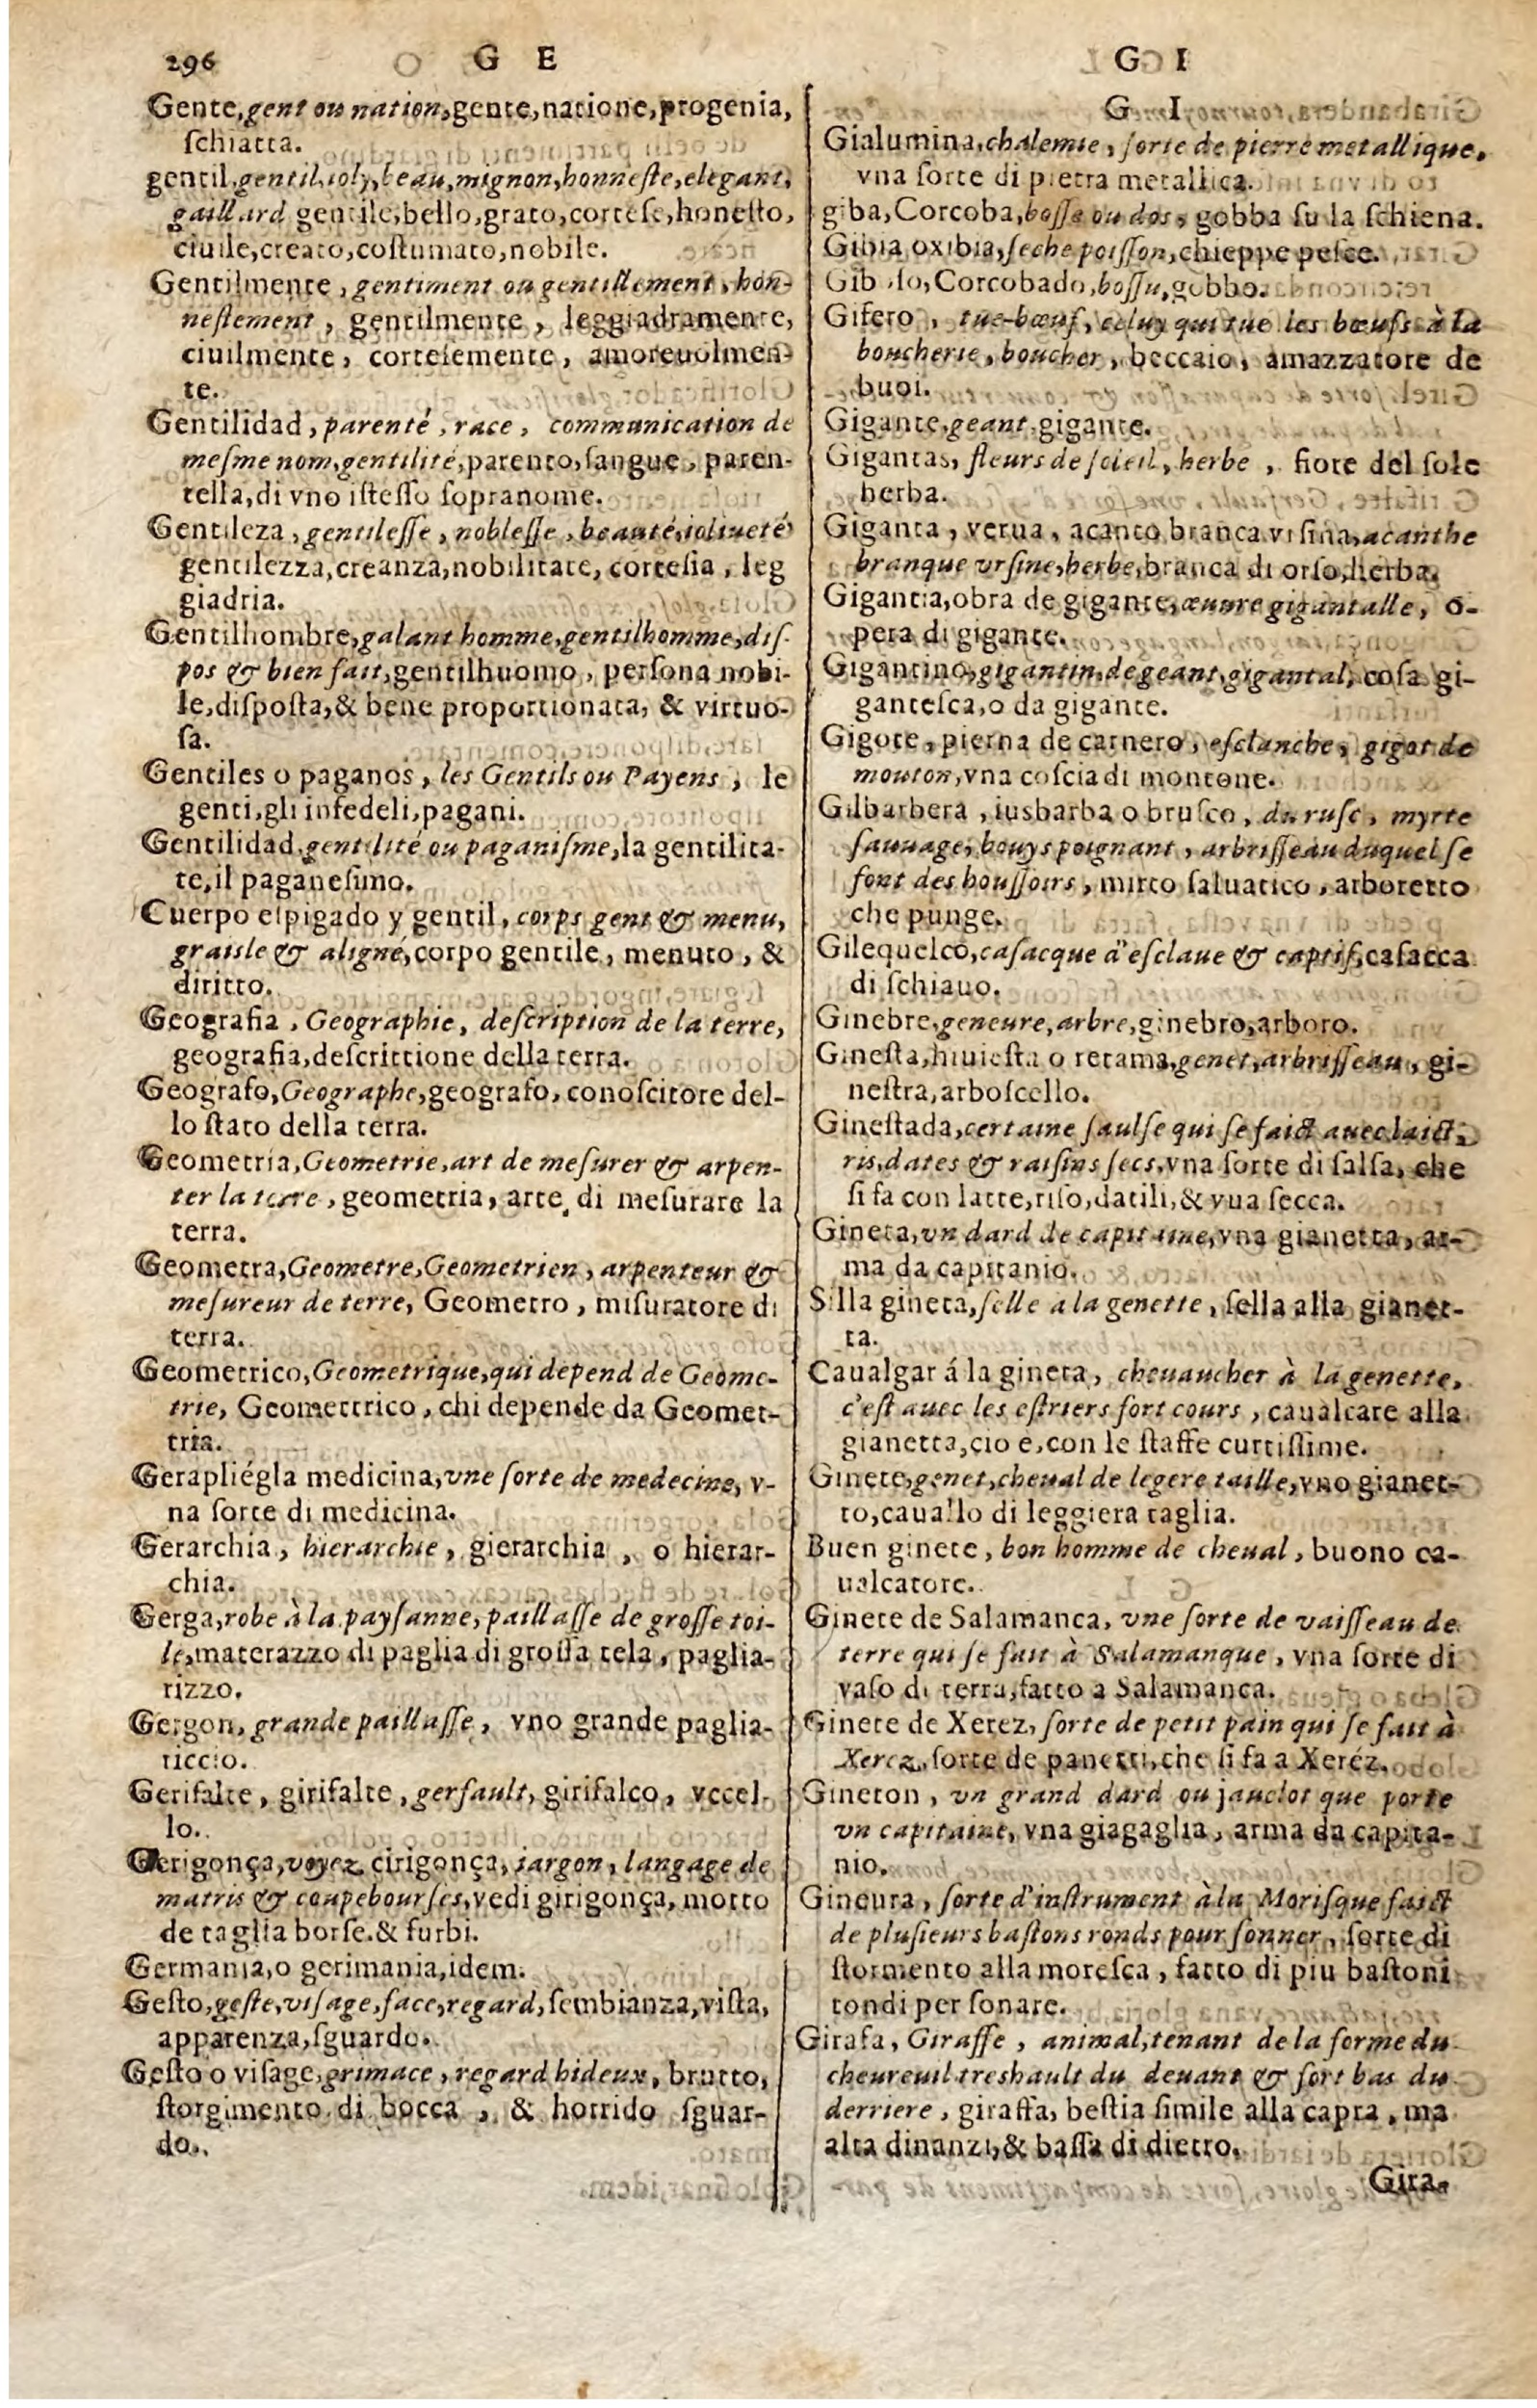 296 G E
Gente, gent ou nation, gente, natione, progenia,
ſchiatta.
gentil, gentil, ioly, beau, mignon, honneſte, elegant,
gaillard gentile, bello, grato, corteſe, honeſto,
ciuile, creato, coſtumato, nobile.
Gentilmente, gentiment ou gentillement, hon-
neſtement, gentilmente, leggiadramente,
ciuilmente, corteſemente, amoreuolmen-
te.
Gentilidad, parenté, race, communication de
meſme nom, gentilité, parento, ſangue, paren-
tella, di vno iſteſſo ſopranome.
Gentileza, gentileſſe, nobleſſe, beauté, ioliueté
gentilezza, creanza, nobilitate, corteſia, leg
giadria.
Gentilhombre, galant homme, gentilhomme, diſ-
pos & bien fait, gentilhuomo, perſona nobi-
le, diſpoſta, & bene proportionata, & virtuo-
ſa.
Gentiles o paganos, les Gentils ou Payens, le
genti, gli infedeli, pagani.
Gentilidad, gentilité ou paganiſme, la gentilita-
te, il paganeſimo.
Cuerpo eſpigado y gentil, corps gent & menu,
graiſle & aligné, corpo gentile, menuto, &
diritto.
Geografia, Geographie, deſcription de la terre,
geografia, deſcrittione della terra.
Geografo, Geographe, geografo, conoſcitore del-
lo ſtato della terra.
Geometria, Geometrie, art de meſurer & arpen-
ter la terre, geometria, arte di meſurare la
terra.
Geometra, Geometre, Geometrien, arpenteur &
meſureur de terre, Geometro, miſuratore di
terra.
Geometrico, Geometrique, qui depend de Geome-
trie, Geomettrico, chi depende da Geomet-
tria.
Gerapliégla medicina, vne ſorte de medecine, v-
na ſorte di medicina.
Gerarchia, hierarchie, gierarchia, o hierar-
chia.
Gerga, robe à la payſanne, paillaſſe de groſſe toi-
le, materazzo di paglia di groſſa tela, paglia-
rizzo.
Gergon, grande paillaſſe, vno grande paglia-
riccio.
Gerifalte, girifalte, gerfault, girifalco, vccel-
lo.
Gerigonça, voyez cirigonça, iargon, langage de
matris & coupebourſes, vedi girigonça, motto
de taglia borſe. & furbi.
Germania, o gerimania, idem.
Geſto, geſte, viſage, face, regard, ſembianza, viſta,
apparenza, ſguardo.
Geſto o viſage, grimace, regard hideux, brutto,
ſtorgimento di bocca, & horrido ſguar-
do.
G I
G I
Gialumina, chalemie, ſorte de pierre metallique,
vna ſorte di pietra metallica.
giba, Corcoba, boſſe ou dos, gobba ſu la ſchiena.
Gibia oxibia, ſeche poiſſon, chieppe peſce.
Gib lo, Corcobado, boſſu, gobbo.
Gifero, tue-bœuf, celuy qui tue les bœufs à la
boucherie, boucher, beccaio, amazzatore de
buoi.
Gigante, geant, gigante.
Gigantas, fleurs de ſoleil, herbe, fiore del ſole
herba.
Giganta, yerua, acanto, branca vrſina, acanthe
branque vrſine, herbe, branca di orſo, herba.
Gigantia, obra de gigante, œuure gigantalle, o-
pera di gigante.
Gigantino, gigantin, de geant, gigantal, coſa gi-
ganteſca, o da gigante.
Gigote, pierna de carnero, eſclanche, gigot de
mouton, vna coſcia di montone.
Gilbarbera, iusbarba o bruſco, du ruſc, myrte
ſauuage, bouys poignant, arbriſſeau duquel ſe
font des houſſoirs, mirto ſaluatico, arboretto
che punge.
Gilequelco, caſacque d'eſclaue & captif, caſacca
di ſchiauo.
Ginebre, geneure, arbre, ginebro, arboro.
Gineſta, hiuieſta o retama, genet, arbriſſeau, gi-
neſtra, arboſcello.
Gineſtada, certaine ſaulſe qui ſe faict auec laict,
ris, dates & raiſins ſecs, vna ſorte di ſalſa, che
ſi fa con latte, riſo, datili, & vua ſecca.
Gineta, vn dard de capitaine, vna gianetta, ar-
ma da capitanio.
Silla gineta, ſelle a la genette, ſella alla gianet-
ta.
Caualgar á la gineta, cheuaucher à la genette,
c'eſt auec les eſtriers fort cours, caualcare alla
gianetta, cio e, con le ſtaffe curtiſſime.
Ginete, genet, cheual de legere taille, vno gianet-
to, cauallo di leggiera taglia.
Buen ginete, bon homme de cheual, buono ca-
ualcatore.
Ginete de Salamanca, vne ſorte de vaiſſeau de
terre qui ſe fait à Salamanque, vna ſorte di
vaſo di terra, fatto a Salamanca.
Ginete de Xerez, ſorte de petit pain qui ſe fait à
Xerez, ſorte de panetti, che ſi fa a Xeréz.
Gineton, vn grand dard ou jauelot que porte
vn capitaine, vna giagaglia, arma da capita-
nio.
Gineura, ſorte d'inſtrument à la Moriſque faict
de pluſieurs baſtons ronds pour ſonner, ſorte di
ſtormento alla moreſca, fatto di piu baſtoni
tondi per ſonare.
Girafa, Giraffe, animal, tenant de la forme du
cheureuil treshault du deuant & fort bas du
derriere, giraffa, beſtia ſimile alla capra, ma
alta dinanzi, & baſſa di dietro.
Gira-